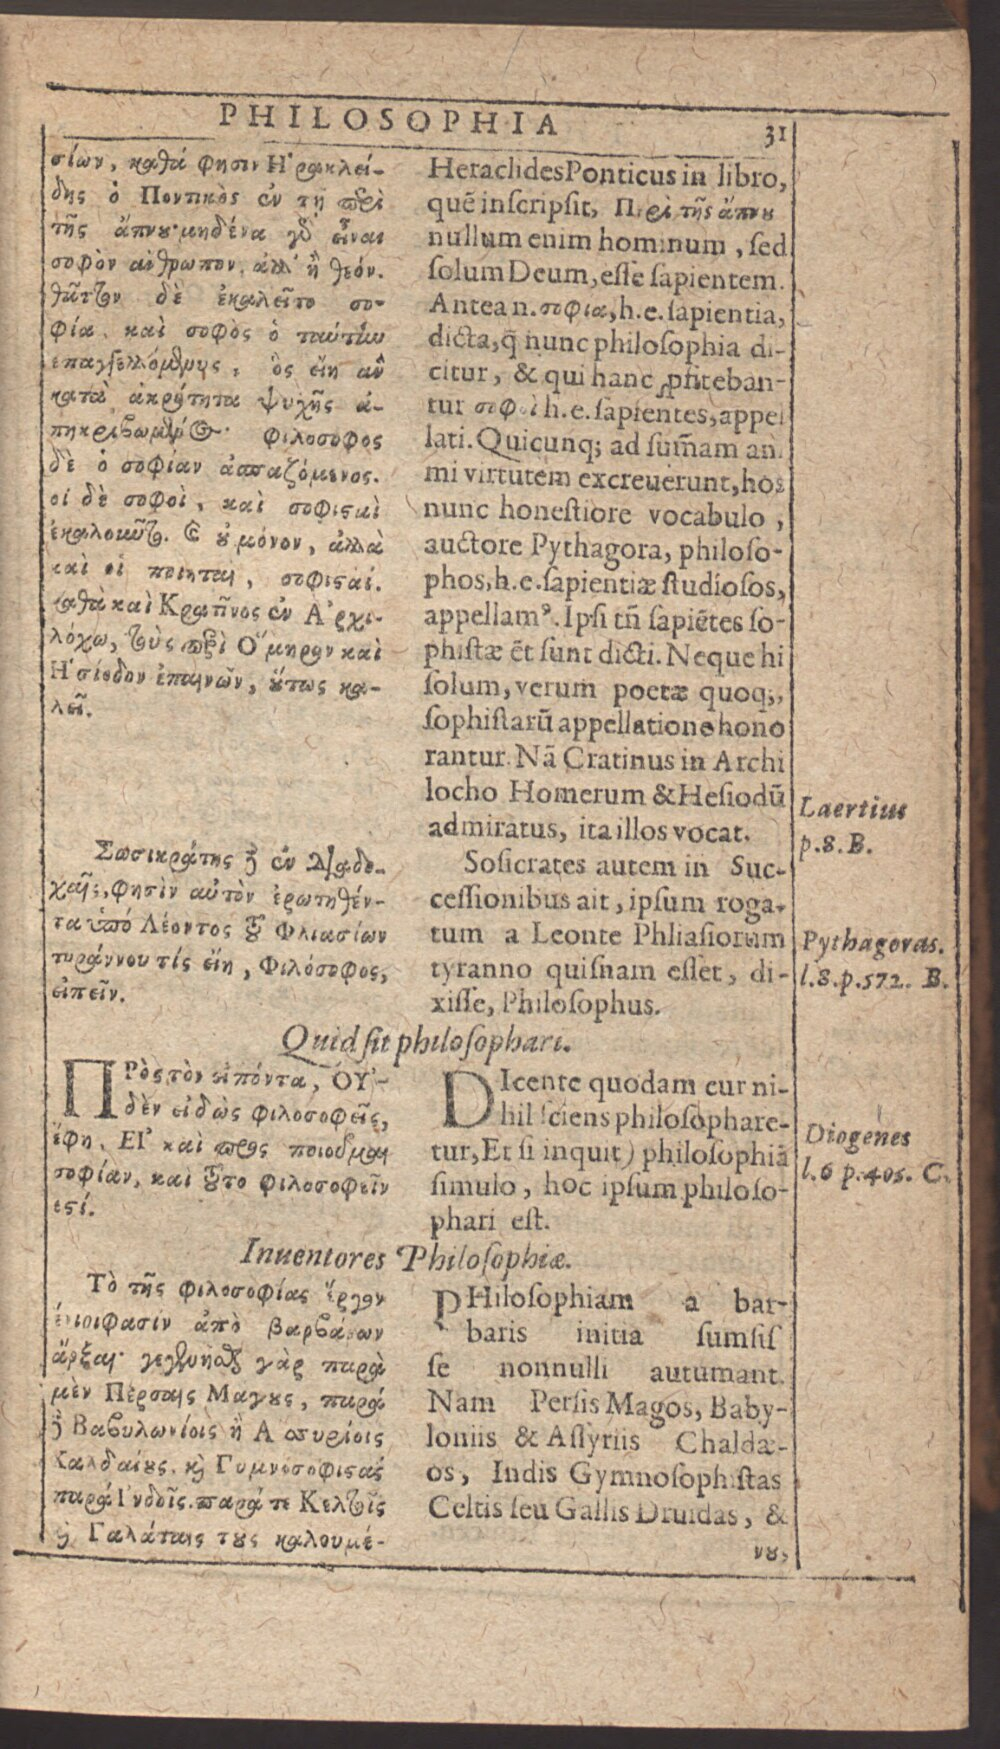 PHILOSOPHIA 31
σίων, καθά φησιν Ἡρακλεί-
δης ὁ Ποντικὸς ἐν τῇ περὶ
τῆς ἄπνου· μηδένα γὸ εἶναι
σοφὸν ἄνθρωπον, ἀλλ' ἢ θεόν.
θᾶττον δὲ ἐκαλεῖτο σο-
φία, καὶ σοφὸς ὁ ταύτην
ἐπαγγελλόμενος, ὃς εἴη ἂν
κατὰ ἀκρότητα ψυχῆς ἀ-
πηκριβωμένος· φιλόσοφος
δὲ ὁ σοφίαν ἀσπαζόμενος.
οἱ δὲ σοφοὶ, καὶ σοφισταὶ
ἐκαλοῦντο. Καὶ οὐ μόνον, ἀλλὰ
καὶ οἱ ποιηταὶ, σοφισταί.
καθὰ καὶ Κρατῖνος ἐν Ἀρχι-
λόχῳ, τοὺς περὶ Ὅμηρον καὶ
Ἡσίοδον ἐπαινῶν, οὕτως κα-
λεῖ.
Σωσικράτης δὲ ἐν Διαδο-
χαῖς, φησὶν αὐτὸν ἐρωτηθέν-
τα ὑπὸ Λέοντος τοῦ Φλιασίων
τυράννου τίς εἴη, Φιλόσοφος,
εἰπεῖν.
HeraclidesPonticus in libro,
quē inscripsit, Περὶ τῆς ἄπνου
nullum enim hominum, sed
solum Deum, esse sapientem.
Antea n. σοφία, h.e. sapientia,
dicta, q̃ nunc philosophia di-
citur, & qui hanc ꝓfiteban-
tur σοφοὶ h.e. sapientes, appel
lati. Quicunq; ad sum̃am ani
mi virtutem excreuerunt, hos
nunc honestiore vocabulo,
auctore Pythagora, philoso-
phos, h.e. sapientiæ studiosos,
appellamꝰ. Ipsi tñ sapiētes so-
phistæ ēt sunt dicti. Neque hi
solum, verum poetæ quoq;,
sophistarū appellatione hono
rantur. Nā Cratinus in Archi
locho Homerum & Hesiodū
admiratus, ita illos vocat.
Sosicrates autem in Suc-
cessionibus ait, ipsum roga-
tum a Leonte Phliasiorum
tyranno quisnam esset, di-
xisse, Philosophus.
Laertius
p.8.B.
Pythagoras.
l.8.p.572. B.
Quid sit philosophari.
ΠΡὸς τὸν εἰπόντα, ΟΥ̓-
δὲν εἰδὼς φιλοσοφεῖς,
ἔφη, ΕΙ' καὶ προσποιοῦμαι
σοφίαν, καὶ τοῦτο φιλοσοφεῖν
ἐστί.
DIcente quodam cur ni-
hil sciens philosophare-
tur, Et si inquit) philosophiā
simulo, hoc ipsum philoso-
phari est.
Diogenes
l.6 p.405. C.
Inuentores Philosophiæ.
Τὸ τῆς φιλοσοφίας ἔργον
ἔνιοι φασὶν ἀπὸ βαρβάρων
ἄρξαι· γεγενῆσθαι γὰρ παρὰ
μὲν Πέρσαις Μάγους, παρὰ
δὲ Βαβυλωνίοις ἢ Ἀσσυρίοις
Χαλδαίους, καὶ Γυμνοσοφιστὰς
παρὰ Ἰνδοῖς. παρά τε Κελτοῖς
καὶ Γαλάταις τοὺς καλουμέ-
PHilosophiam a bar-
baris initia sumsis
se nonnulli autumant.
Nam Persis Magos, Baby-
loniis & Assyriis Chaldæ-
os, Indis Gymnosophistas
Celtis seu Gallis Druidas, &
νου,